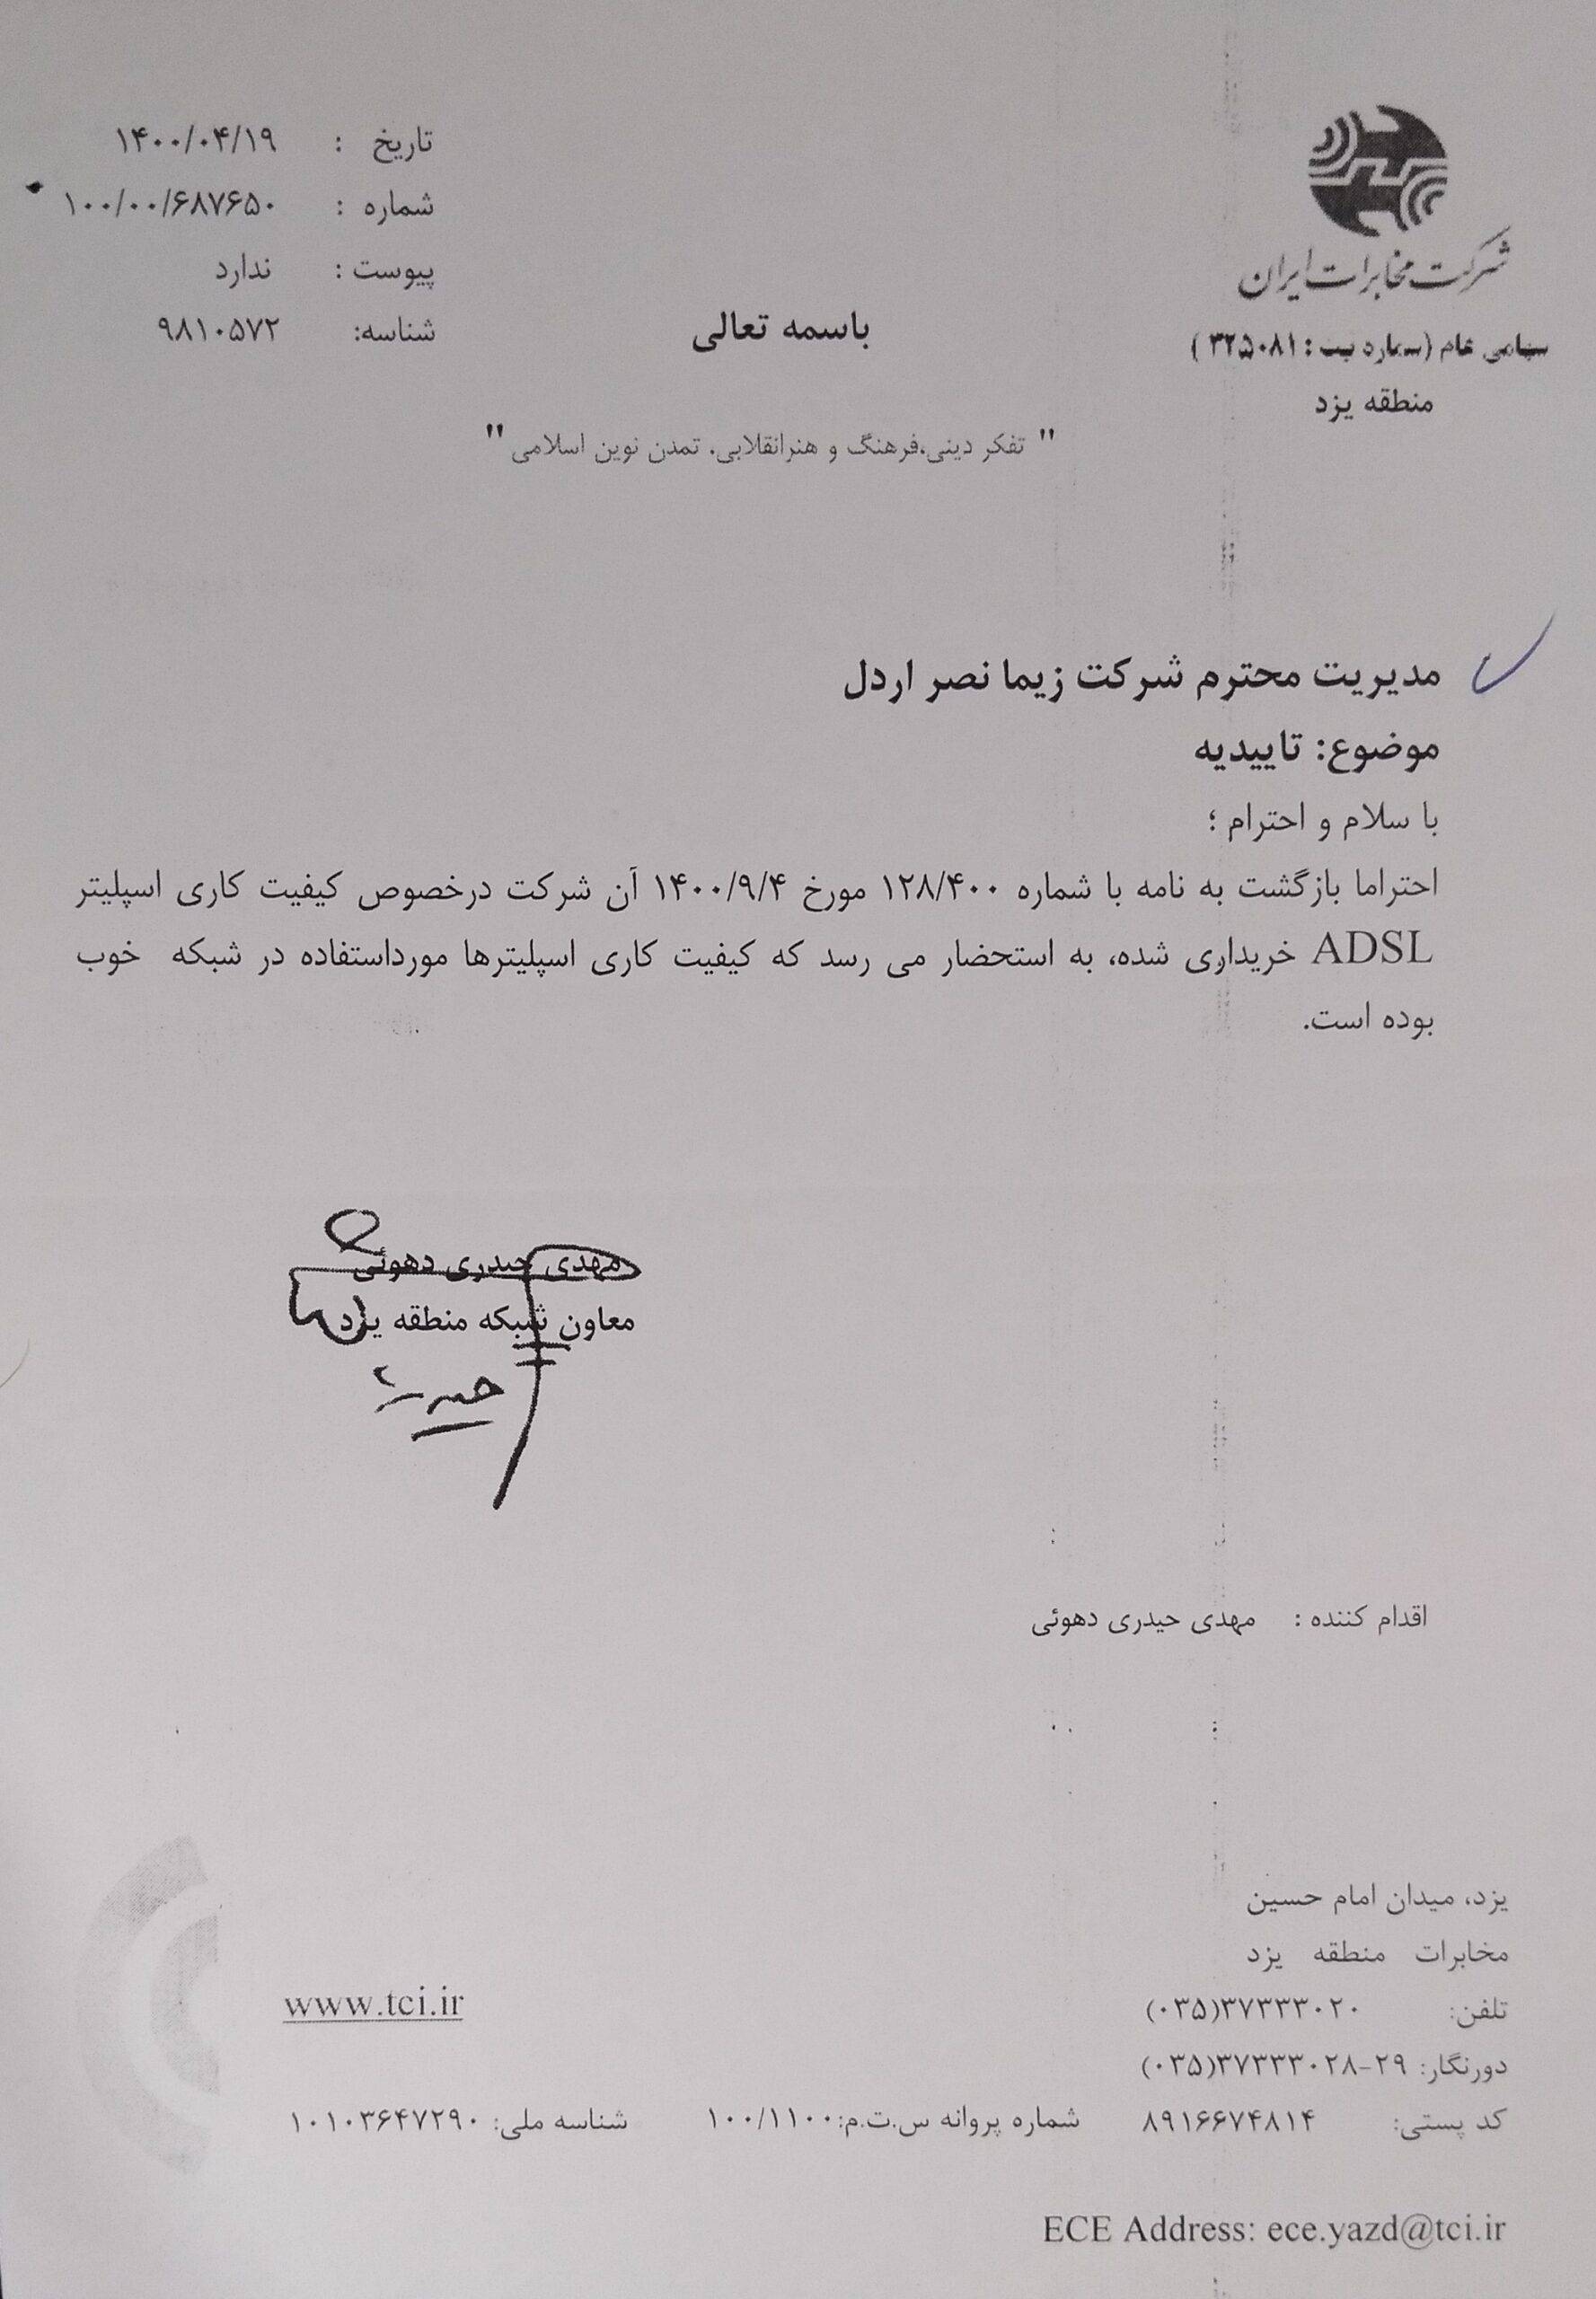 شرکت مخابرات ایران
سهامی عام (شماره ثبت : ۳۲۵۰۸۱ )
منطقه یزد
تاریخ : ۱۴۰۰/۰۴/۱۹
شماره : ۱۰۰/۰۰/۶۸۷۶۵۰
پیوست : ندارد
شناسه: ۹۸۱۰۵۷۲
باسمه تعالی
" تفکر دینی،فرهنگ و هنرانقلابی، تمدن نوین اسلامی "
مدیریت محترم شرکت زیما نصر اردل
موضوع: تاییدیه
با سلام و احترام ؛
احتراما بازگشت به نامه با شماره ۱۲۸/۴۰۰ مورخ ۱۴۰۰/۹/۴ آن شرکت درخصوص کیفیت کاری اسپلیتر
ADSL خریداری شده، به استحضار می رسد که کیفیت کاری اسپلیترها مورداستفاده در شبکه خوب
بوده است.
مهدی حیدری دهوئی
معاون شبکه منطقه یزد
اقدام کننده : مهدی حیدری دهوئی
یزد، میدان امام حسین
مخابرات منطقه یزد
تلفن: ۳۷۳۳۳۰۲۰(۰۳۵)
www.tci.ir
دورنگار: ۲۹-۳۷۳۳۳۰۲۸(۰۳۵)
کد پستی: ۸۹۱۶۶۷۴۸۱۴ شماره پروانه س.ت.م:۱۰۰/۱۱۰۰ شناسه ملی: ۱۰۱۰۳۶۴۷۲۹۰
ECE Address: ece.yazd@tci.ir